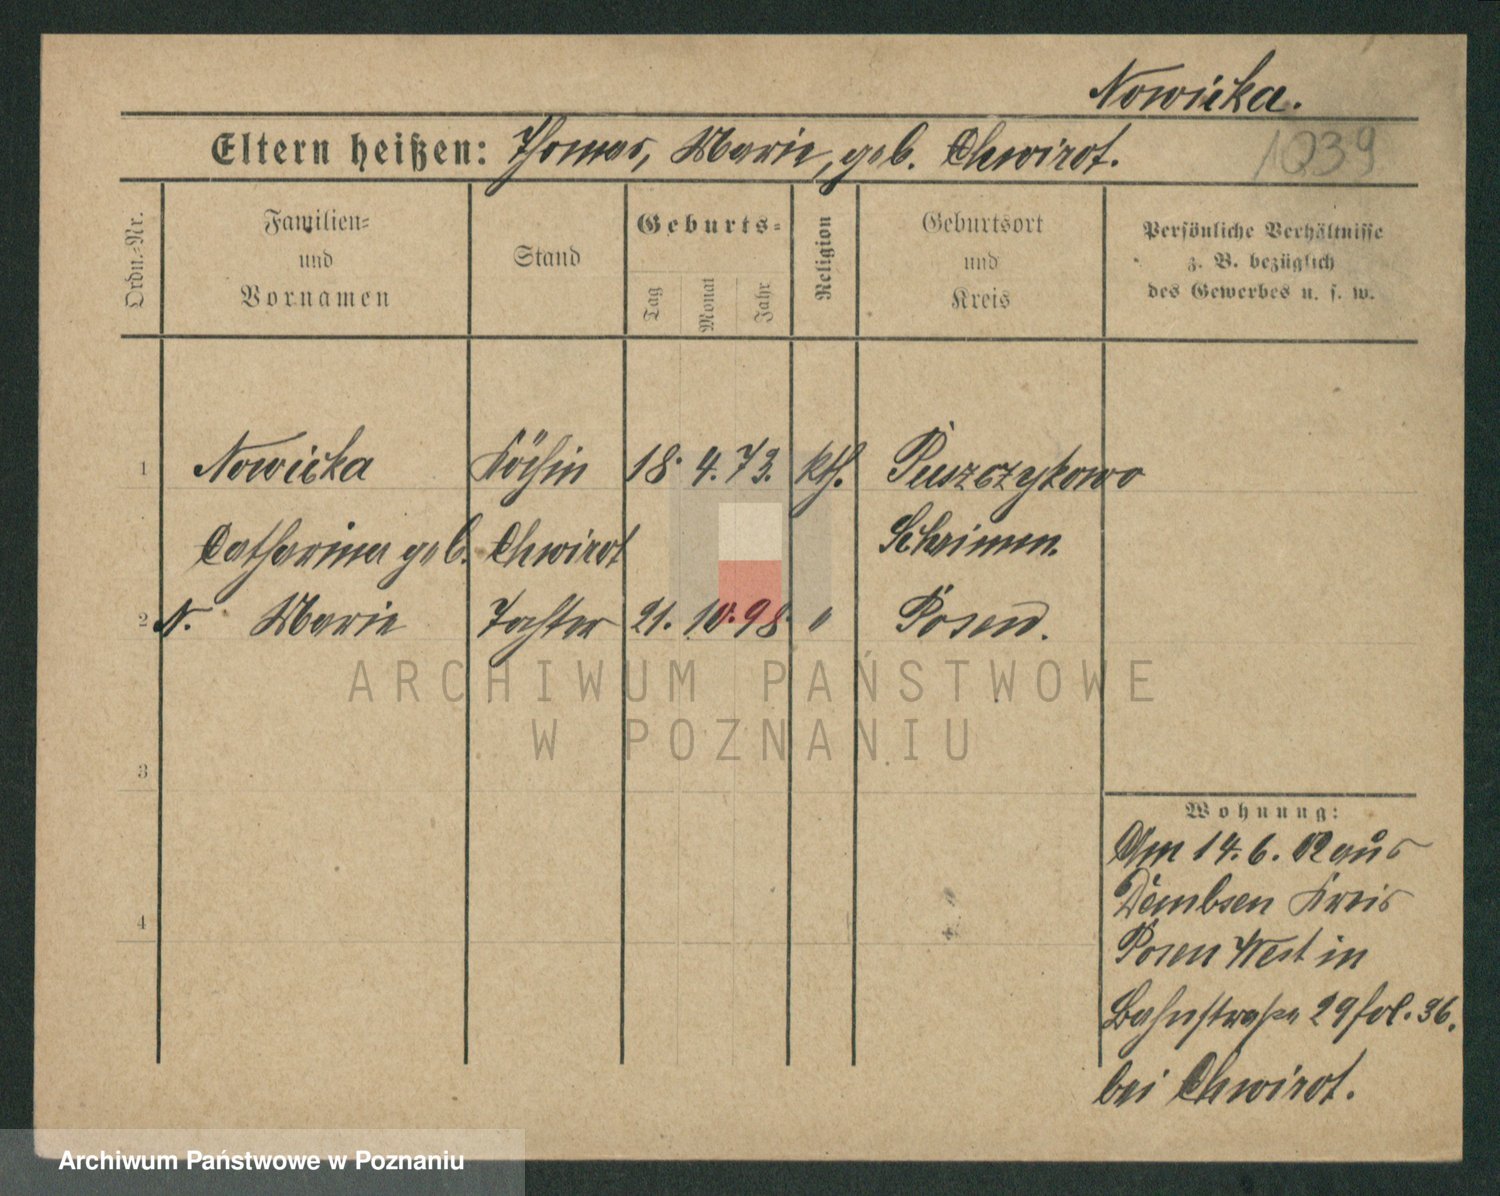 Nowicka.
Eltern heißen: Thomas, Marie, geb. Chwirot.
1039
Ordn.-Nr.
Familien-
und
Vornamen
Stand
Geburts-
Tag
Monat
Jahr
Religion
Geburtsort
und
Kreis
Persönliche Verhältnisse
z. B. bezüglich
des Gewerbes u. s. w.
1 Nowicka Köchin 18. 4. 73. kth. Puszczykowo
Catharina geb. Chwirot Schrimm.
2 N. Marie Tochter 21. 10. 98. " Posen.
ARCHIWUM PAŃSTWOWE
W POZNANIU
3
4
Wohnung:
Am 14. 6. 02 aus
Dembsen Kreis
Posen West in
Bahnstraße 29 fol. 36.
bei Chwirot.
Archiwum Państwowe w Poznaniu